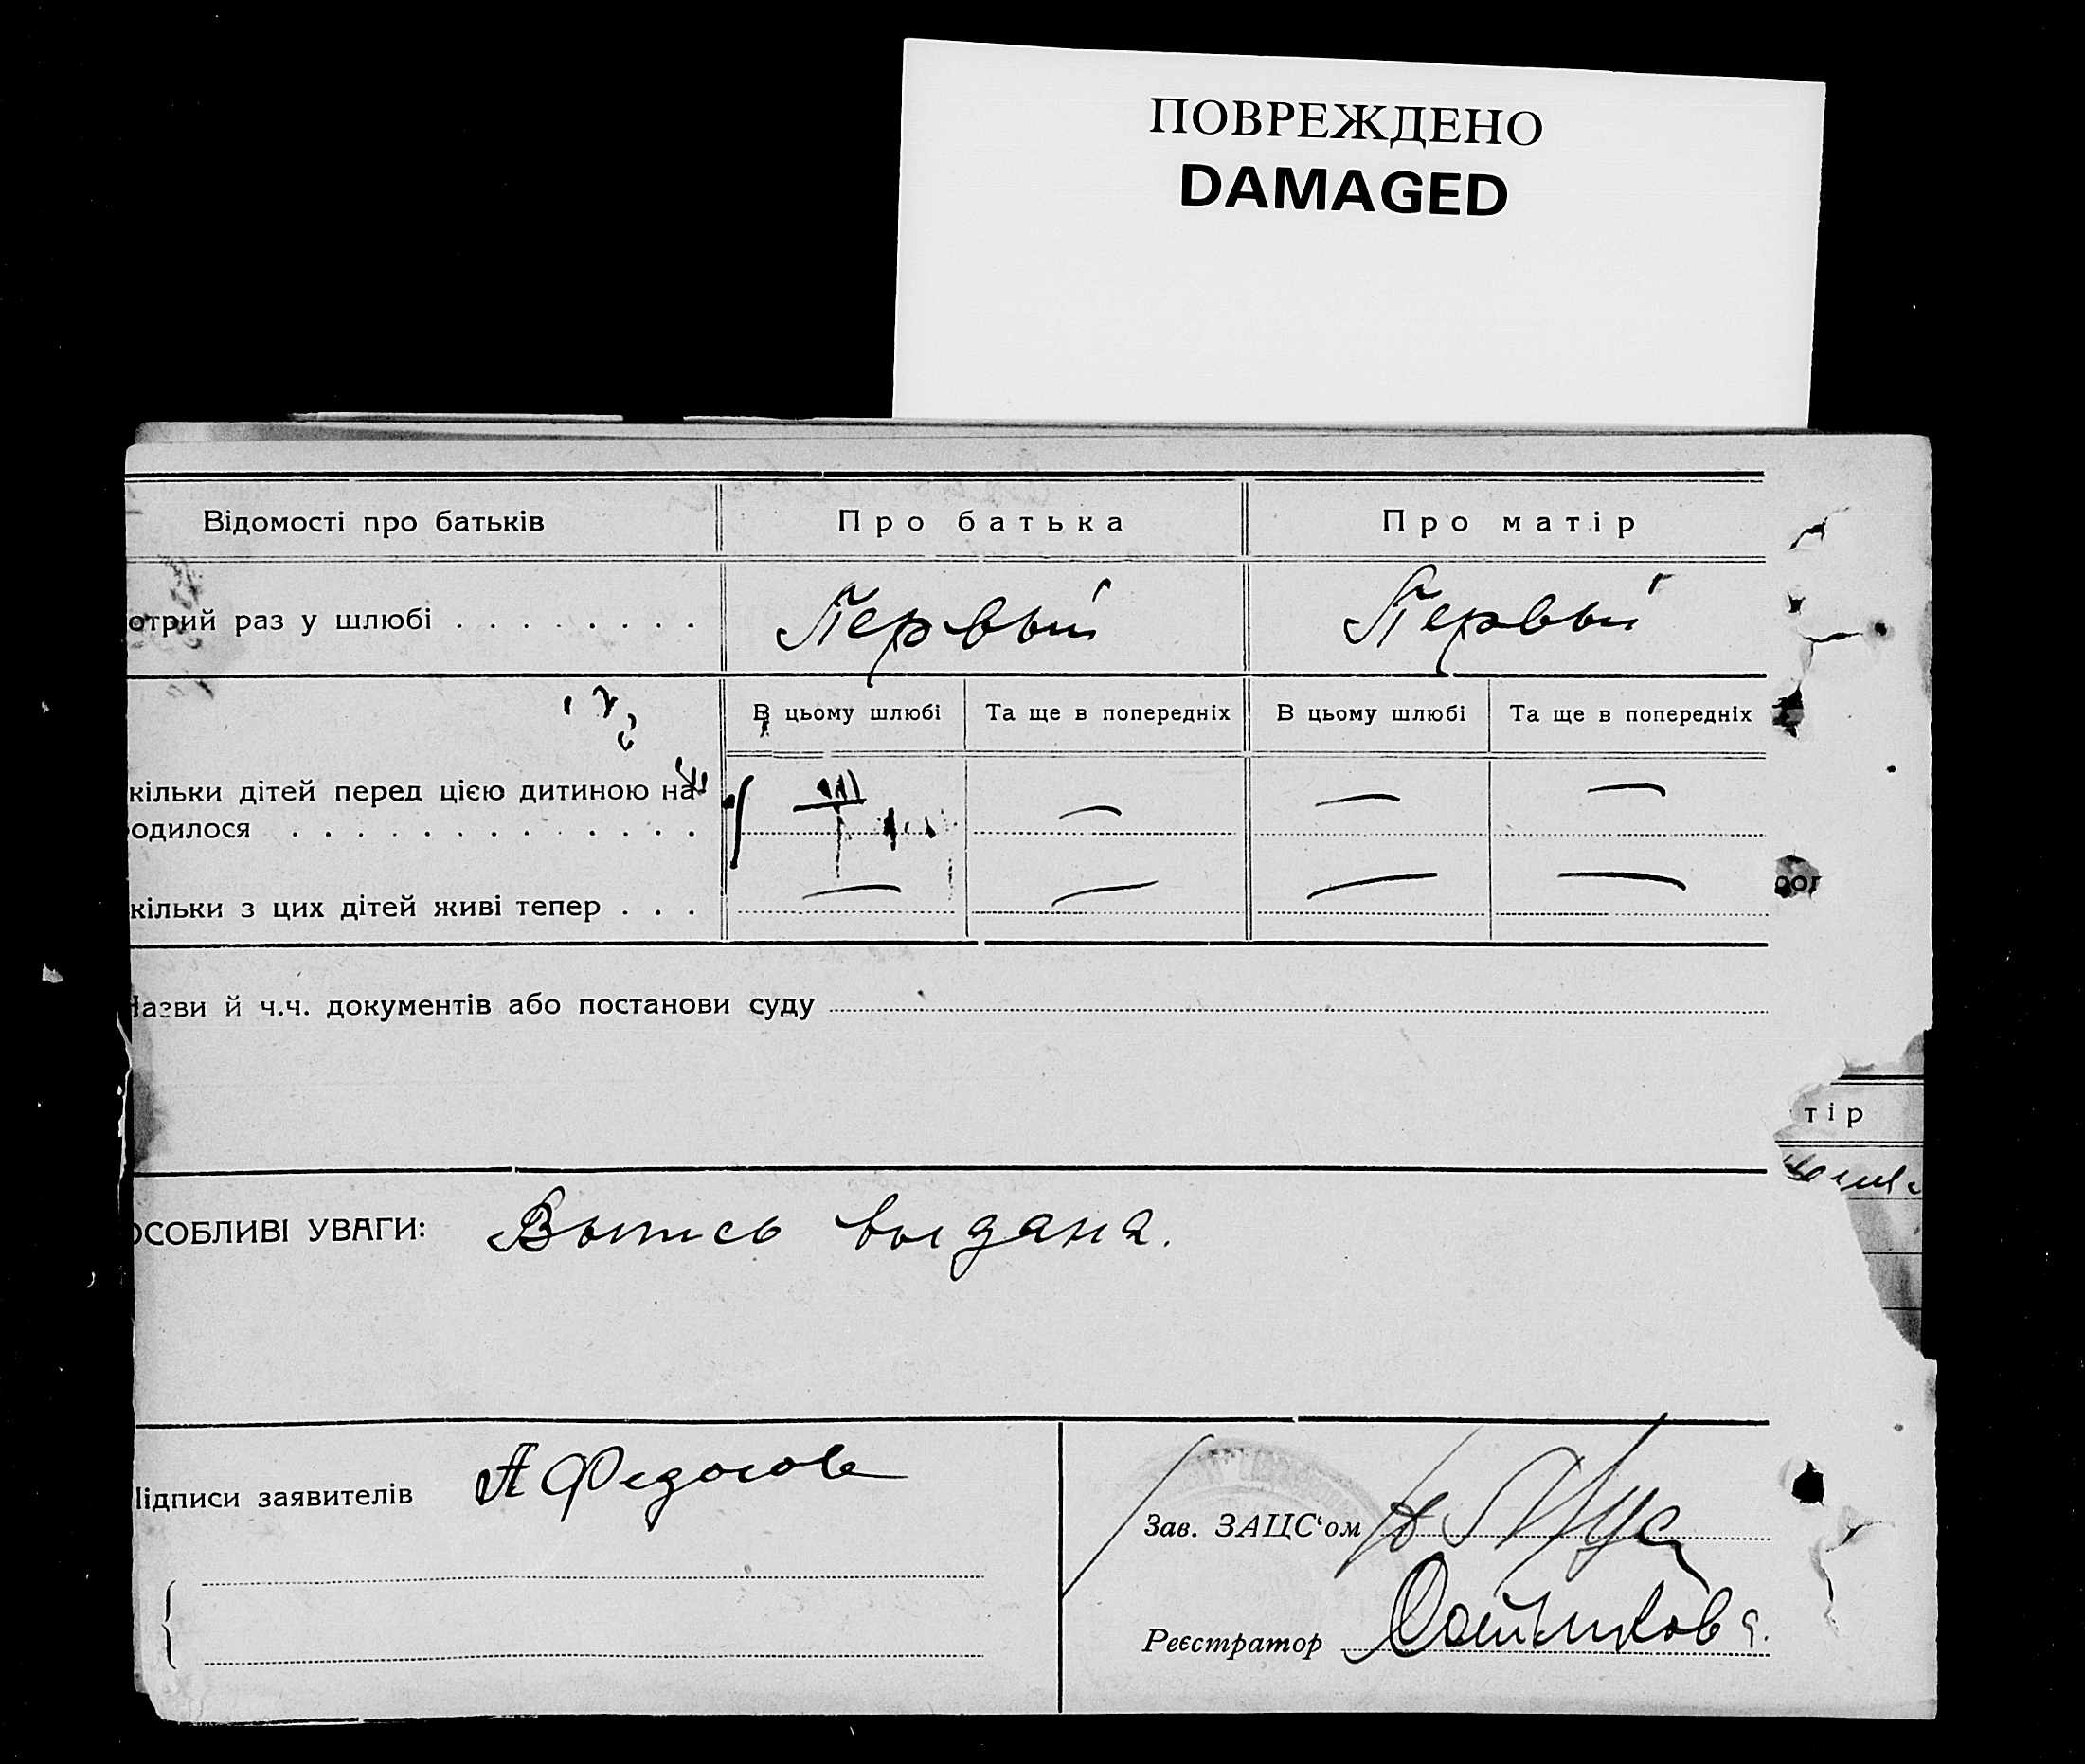 ПОВРЕЖДЕНО
DAMAGED
Відомості про батьків
Про батька
Про матір
отрий раз у шлюбі
Первый
Первый
В цьому шлюбі
Та ще в попередніх
В цьому шлюбі
Та ще в попередніх
кільки дітей перед цією дитиною на-
родилося
— — —
кільки з цих дітей живі тепер
— — — —
Назви й ч.ч. документів або постанови суду
тір
ОСОБЛИВІ УВАГИ: Выпись выдана.
Підписи заявителів А Федосова
Зав. ЗАЦС‘ом
Реєстратор